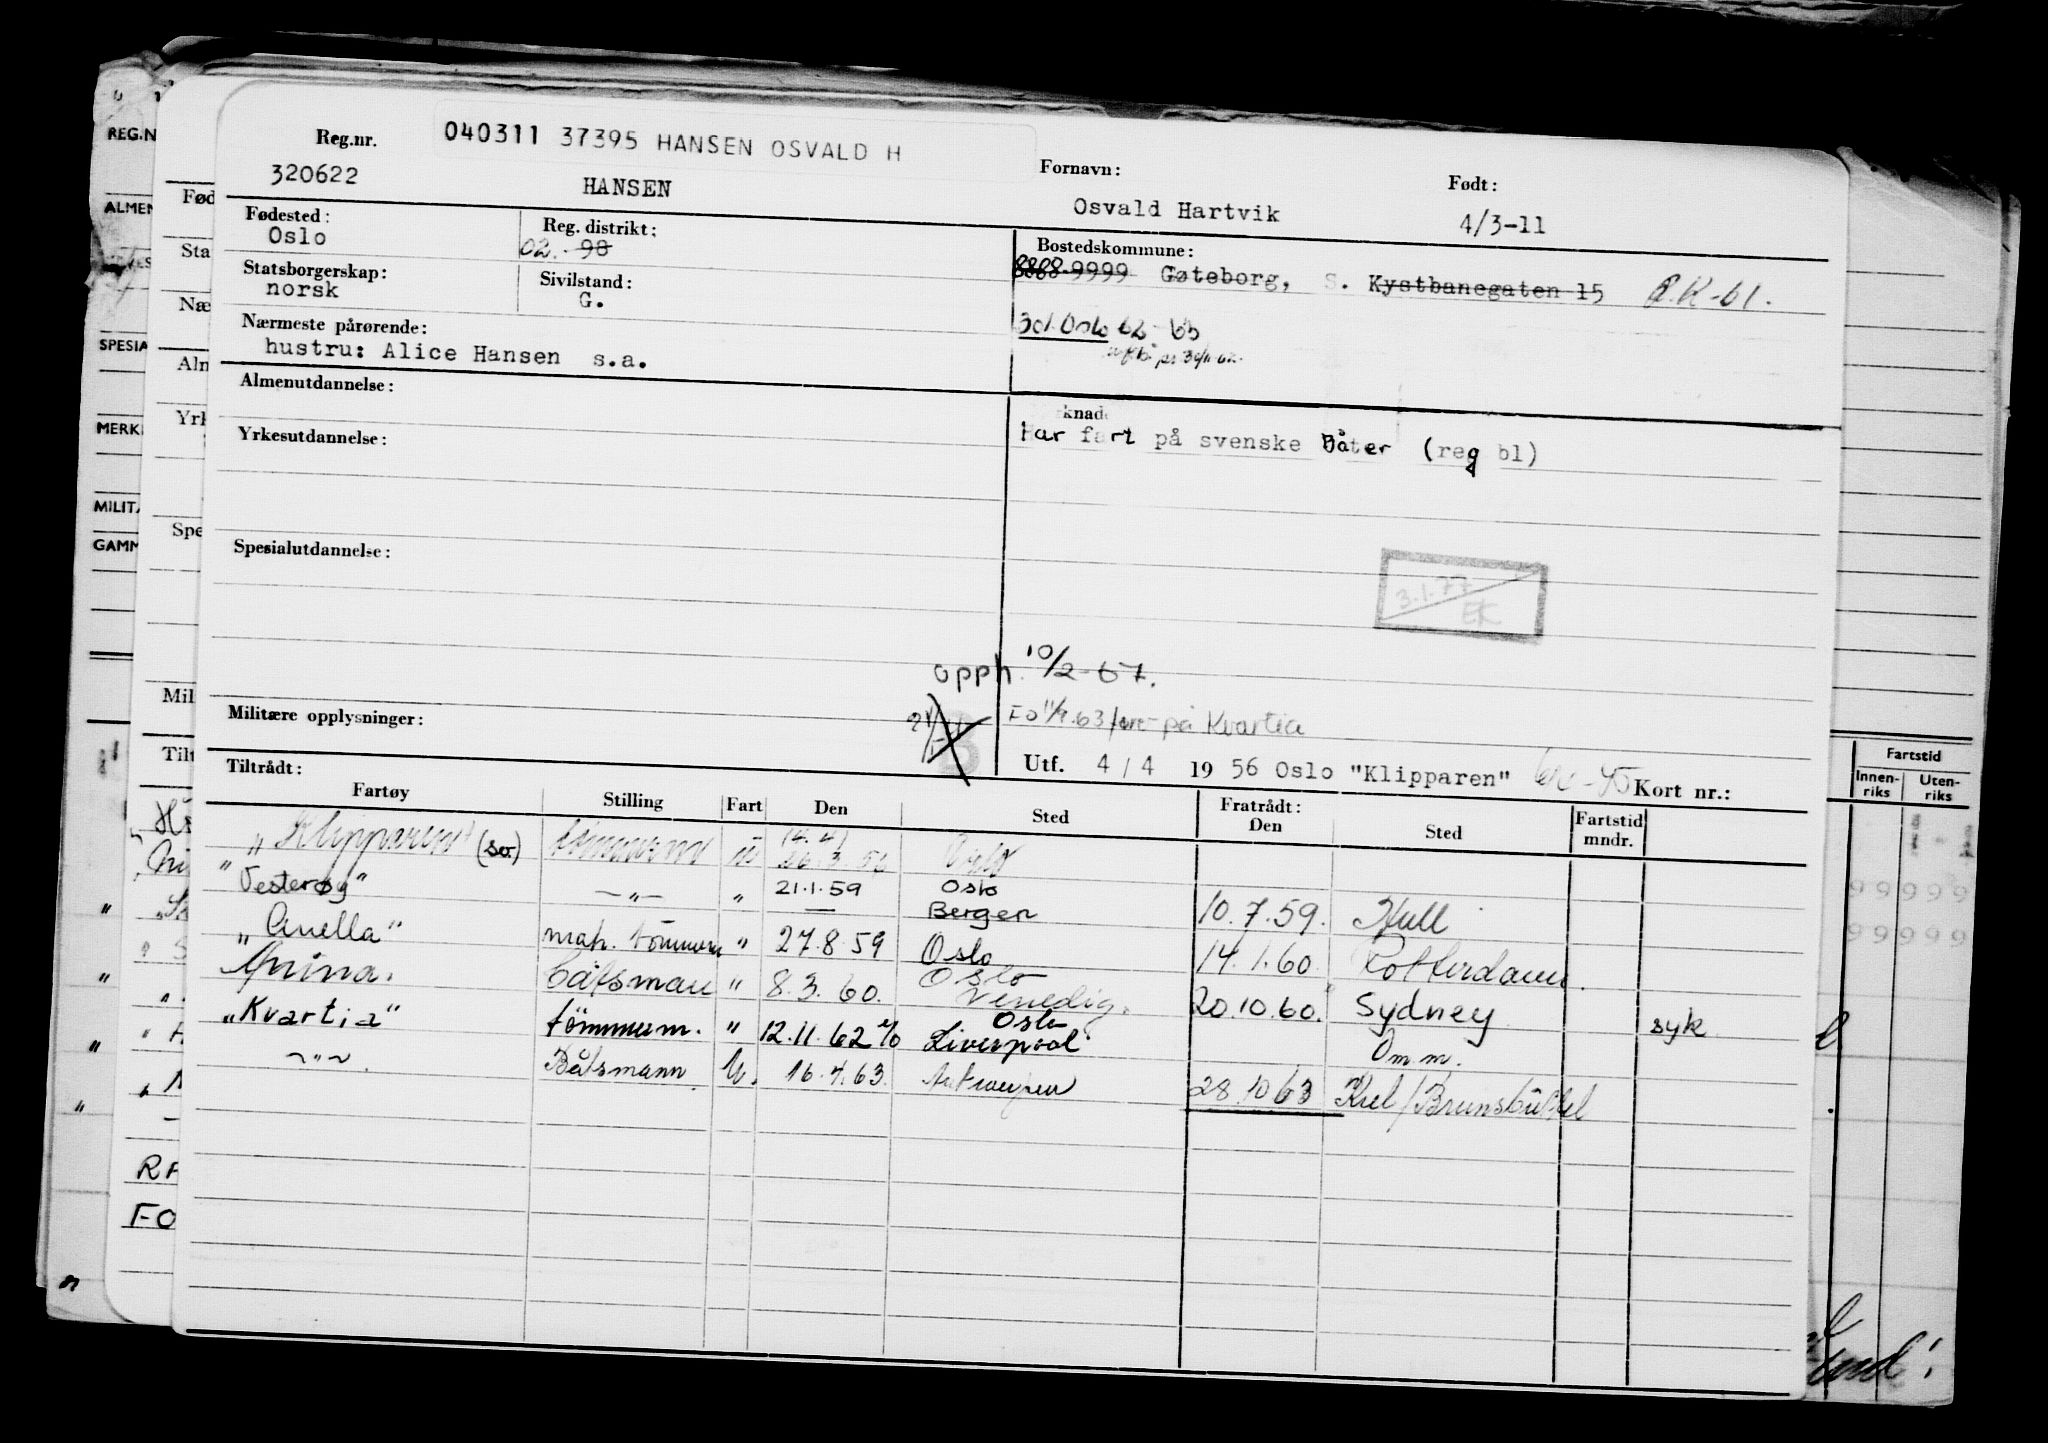 040311 37395 HANSEN OSVALD H
Reg.nr. Fornavn: Født:
320622 HANSEN Osvald Hartvik 4/3-11
Fødested: Reg. distrikt: Bostedskommune:
Oslo 02. 98 8888-9999 Gøteborg, S. Kystbanegaten 15
Statsborgerskap: Sivilstand:
norsk G. 301 Oslo 62-63
Nærmeste pårørende:
hustru: Alice Hansen s.a.
Almenutdannelse:
Har fart på svenske båter (reg bl)
Yrkesutdannelse:
Spesialutdannelse:
3.1.77
EK
opph. 10/2-67.
Militære opplysninger: FO 11/9.63 på Kvartia
Utf. 4/4 1956 Oslo "Klipparen" Kort nr.:
Tiltrådt: Fratrådt:
Fartøy Stilling Fart Den Sted Den Sted Fartstid mndr.
"Klipparen" (sv.) tømmerm u (4.4) 26.3.56 Oslo
"Vesterøy" —"— " 21.1.59 Oslo
— Bergen 10.7.59. Hull
"Anella" mah. tømmerm " 27.8.59 Oslo 14.1.60 Rotterdam.
Anina. Båtsman " 8.3.60. Oslo Venedig. 20.10.60. Sydney syk
"Kvartia" tømmerm. " 12.11.62 Oslo Liverpool Om m.
—"—. Båtsmann U. 16.4.63. Antwerpen 28.10 63 Kiel/Brunsbüttel
REG.N
ALMEN
SPESIA
MERK
MILITÆ
GAMM
Fød
Sta
Næ
Alm
Yrk
Spe
Mil
Tilt
FO
Fartstid
Innen-
riks
Uten-
riks